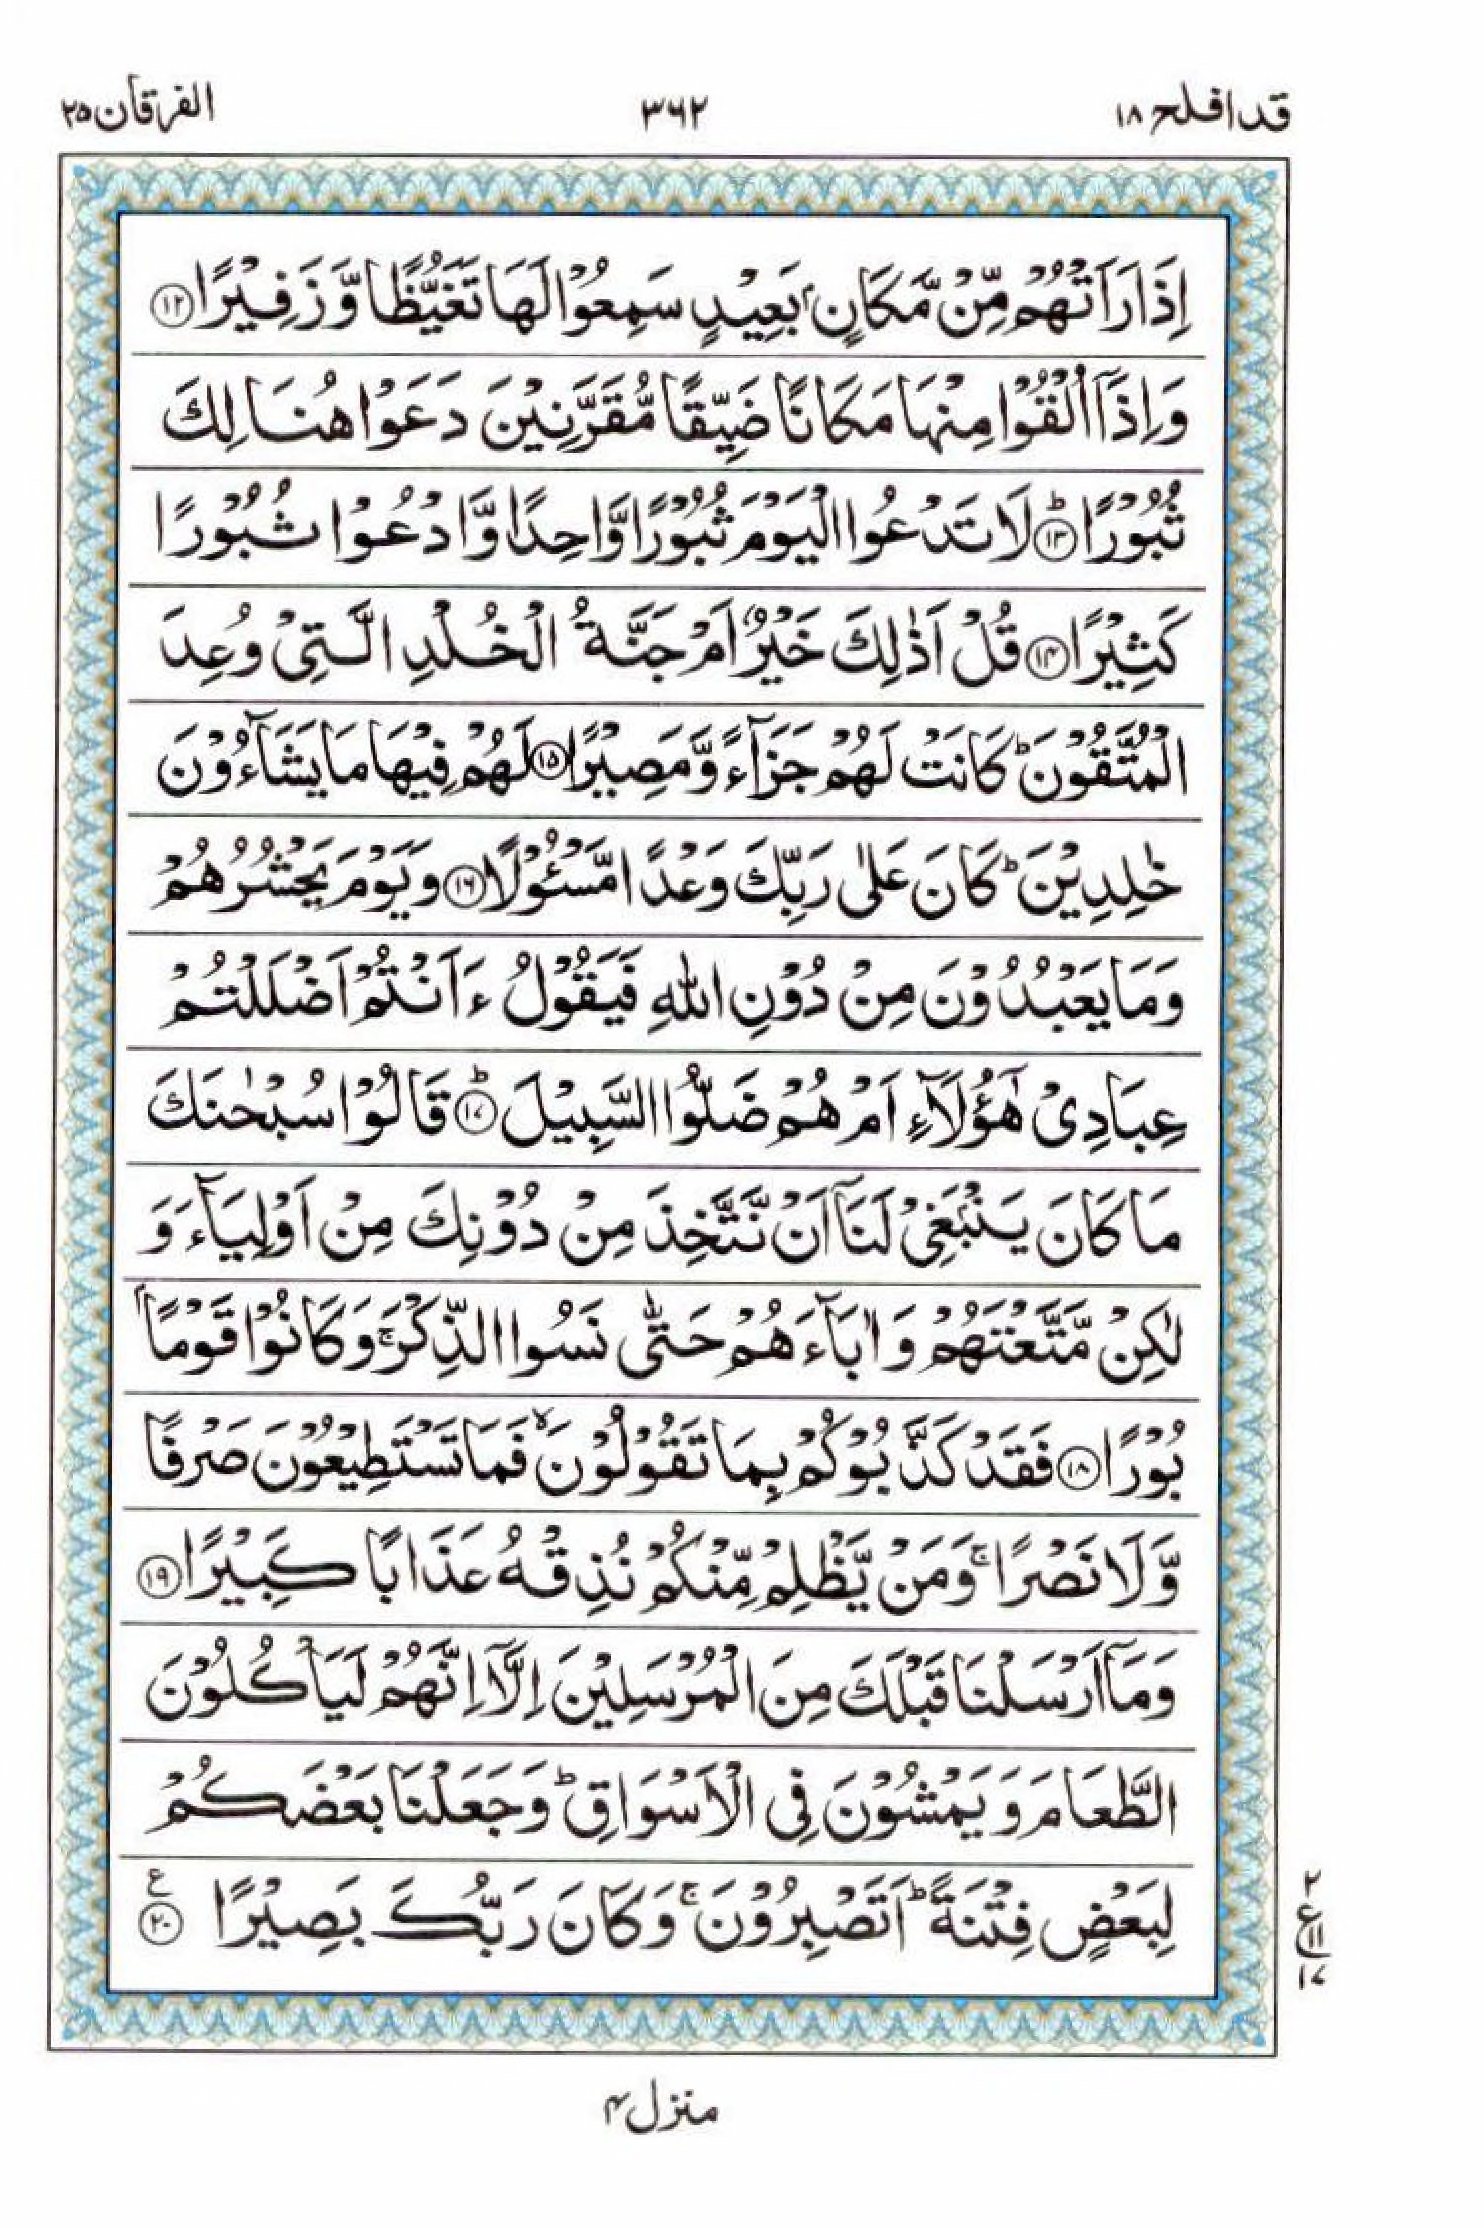 قد افلح ۱۸
۳۶۲
الفرقان ۲۵
اِذَا رَاَتْهُمْ مِّنْ مَّكَانٍۭ بَعِيْدٍ سَمِعُوْا لَهَا تَغَيُّظًا وَّ زَفِيْرًا ۝۱۲
وَاِذَاۤ اُلْقُوْا مِنْهَا مَكَانًا ضَيِّقًا مُّقَرَّنِيْنَ دَعَوْا هُنَالِكَ
ثُبُوْرًا ؕ۝۱۳ لَا تَدْعُوا الْيَوْمَ ثُبُوْرًا وَّاحِدًا وَّادْعُوْا ثُبُوْرًا
كَثِيْرًا ۝۱۴ قُلْ اَذٰلِكَ خَيْرٌ اَمْ جَنَّةُ الْخُلْدِ الَّتِيْ وُعِدَ
الْمُتَّقُوْنَ ؕ كَانَتْ لَهُمْ جَزَآءً وَّ مَصِيْرًا ۝۱۵ لَهُمْ فِيْهَا مَا يَشَآءُوْنَ
خٰلِدِيْنَ ؕ كَانَ عَلٰى رَبِّكَ وَعْدًا مَّسْـُٔوْلًا ۝۱۶ وَ يَوْمَ يَحْشُرُهُمْ
وَمَا يَعْبُدُوْنَ مِنْ دُوْنِ اللّٰهِ فَيَقُوْلُ ءَاَنْتُمْ اَضْلَلْتُمْ
عِبَادِيْ هٰٓؤُلَآءِ اَمْ هُمْ ضَلُّوا السَّبِيْلَ ؕ۝۱۷ قَالُوْا سُبْحٰنَكَ
مَا كَانَ يَنْۢبَغِيْ لَنَاۤ اَنْ نَّتَّخِذَ مِنْ دُوْنِكَ مِنْ اَوْلِيَآءَ وَ
لٰكِنْ مَّتَّعْتَهُمْ وَ اٰبَآءَهُمْ حَتّٰى نَسُوا الذِّكْرَ ۚ وَ كَانُوْا قَوْمًۢا
بُوْرًا ۝۱۸ فَقَدْ كَذَّبُوْكُمْ بِمَا تَقُوْلُوْنَ ۙ فَمَا تَسْتَطِيْعُوْنَ صَرْفًا
وَّلَا نَصْرًا ۚ وَمَنْ يَّظْلِمْ مِّنْكُمْ نُذِقْهُ عَذَابًا كَبِيْرًا ۝۱۹
وَمَاۤ اَرْسَلْنَا قَبْلَكَ مِنَ الْمُرْسَلِيْنَ اِلَّاۤ اِنَّهُمْ لَيَاْكُلُوْنَ
الطَّعَامَ وَ يَمْشُوْنَ فِي الْاَسْوَاقِ ؕ وَجَعَلْنَا بَعْضَكُمْ
لِبَعْضٍ فِتْنَةً ؕ اَتَصْبِرُوْنَ ۚ وَ كَانَ رَبُّكَ بَصِيْرًا ۝۲۰ ع
۲
ع ۱۱
۱۷
منزل ۴